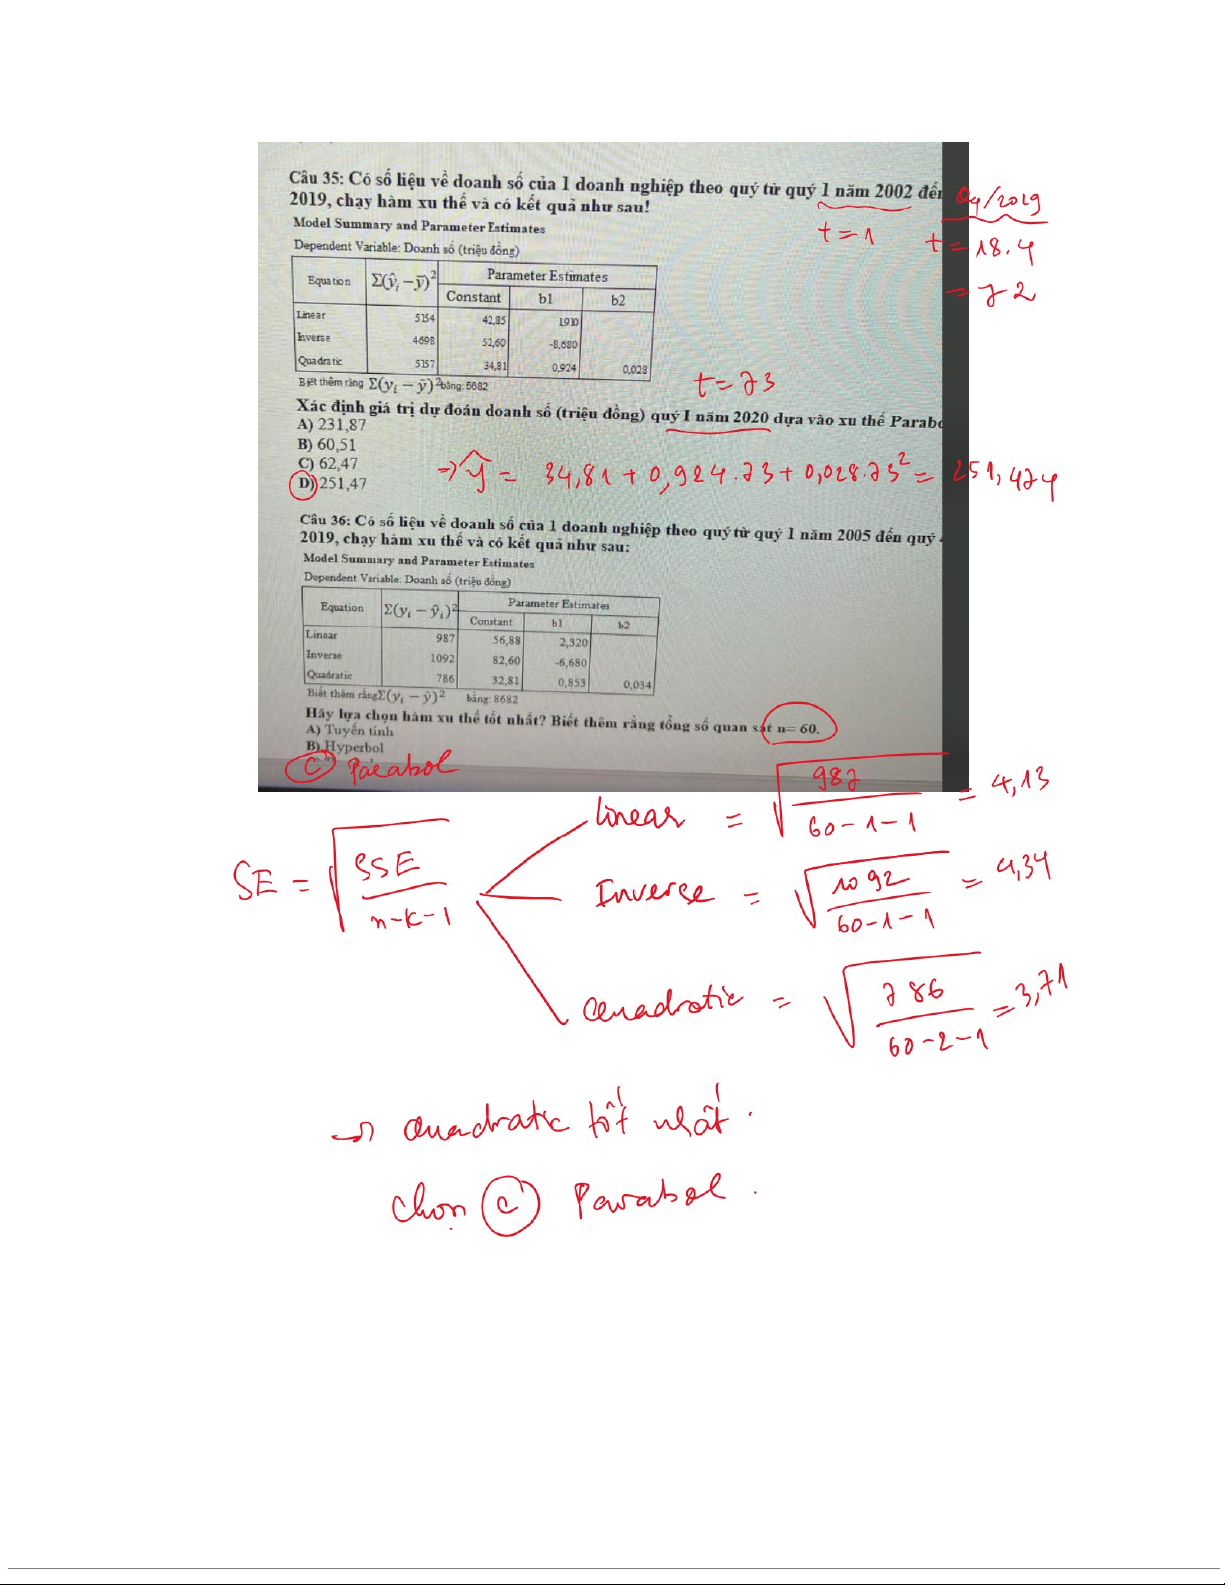 Câu 35: Có số liệu về doanh số của 1 doanh nghiệp theo quý từ quý 1 năm 2002 đến Q4/2019
2019, chạy hàm xu thế và có kết quả như sau!
t=1 t=18.4
=72
Model Summary and Parameter Estimates
Dependent Variable: Doanh số (triệu đồng)
Equation Σ(ŷᵢ − ȳ)² Parameter Estimates
Constant b1 b2
Linear 5154 42,85 1,910
Inverse 4698 52,60 -8,680
Quadratic 5157 34,81 0,924 0,028
Biết thêm rằng Σ(yᵢ − ȳ)² bằng: 5682
t=73
Xác định giá trị dự đoán doanh số (triệu đồng) quý I năm 2020 dựa vào xu thế Parabo
A) 231,87
B) 60,51
C) 62,47
D) 251,47
→ ŷ = 34,81 + 0,924.73 + 0,028.73² = 251,474
Câu 36: Có số liệu về doanh số của 1 doanh nghiệp theo quý từ quý 1 năm 2005 đến quý
2019, chạy hàm xu thế và có kết quả như sau:
Model Summary and Parameter Estimates
Dependent Variable: Doanh số (triệu đồng)
Equation Σ(yᵢ − ŷᵢ)² Parameter Estimates
Constant b1 b2
Linear 987 56,88 2,320
Inverse 1092 82,60 -6,680
Quadratic 786 32,81 0,853 0,034
Biết thêm rằng Σ(yᵢ − ȳ)² bằng: 8682
Hãy lựa chọn hàm xu thế tốt nhất? Biết thêm rằng tổng số quan sát n= 60.
A) Tuyến tính
B) Hyperbol
C Parabol
SE = √(SSE/(n-k-1))
linear = √(987/(60-1-1)) = 4,13
Inverse = √(1092/(60-1-1)) = 4,34
Quadratic = √(786/(60-2-1)) = 3,71
→ Quadratic tốt nhất.
Chọn C Parabol.